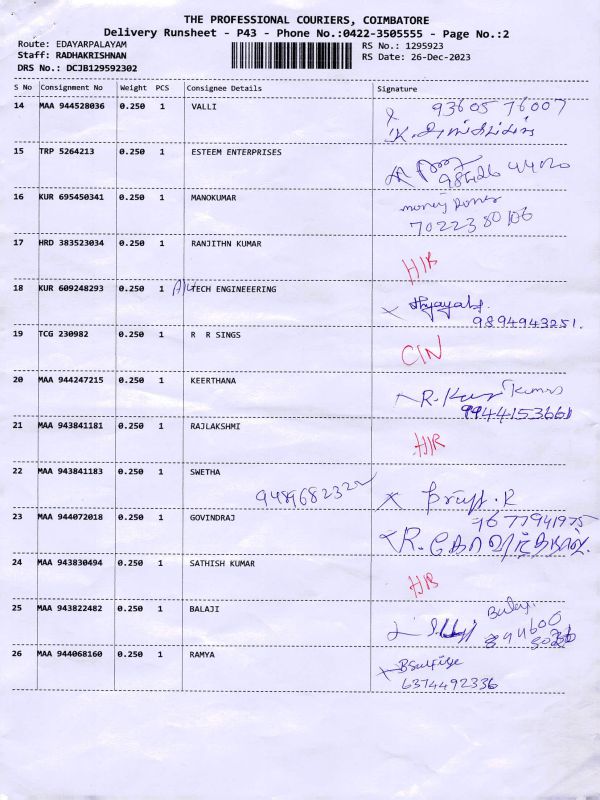 THE PROFESSIONAL COURIERS, COIMBATORE
Delivery Runsheet - P43 - Phone No.:0422-3505555 - Page No.:2
Route: EDAYARPALAYAM
RS No.: 1295923
Staff: RADHAKRISHNAN
RS Date: 26-Dec-2023
DRS No.: DCJB129592302
S No Consignment No Weight PCS Consignee Details Signature
14 MAA 944528036 0.250 1 VALLI 93605 76007
15 TRP 5264213 0.250 1 ESTEEM ENTERPRISES 98426 44020
16 KUR 695450341 0.250 1 MANOKUMAR
7022380106
17 HRD 383523034 0.250 1 RANJITHN KUMAR
18 KUR 609248293 0.250 1 TECH ENGINEEERING
9894943251.
19 TCG 230982 0.250 1 R R SINGS
20 MAA 944247215 0.250 1 KEERTHANA R. Kumar
9944153661
21 MAA 943841181 0.250 1 RAJLAKSHMI
22 MAA 943841183 0.250 1 SWETHA
9489682322
23 MAA 944072018 0.250 1 GOVINDRAJ 9677941975
R. கோவிந்தராஜ்
24 MAA 943830494 0.250 1 SATHISH KUMAR
25 MAA 943822482 0.250 1 BALAJI Balaji
26 MAA 944068160 0.250 1 RAMYA
6374492336